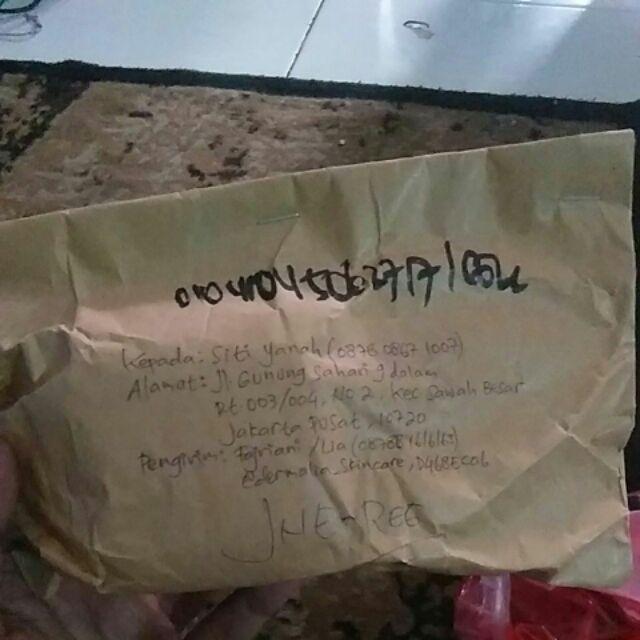 Kepada: Siti Yanah (0878 0867 1007)
Alamat: Jl. Gunung Sahari 9 dalam
Rt 003/004, No 2, Kec Sawah Besar
Jakarta Pusat, 10720
Pengirim: /Lia
Skincare,
JNE-REG